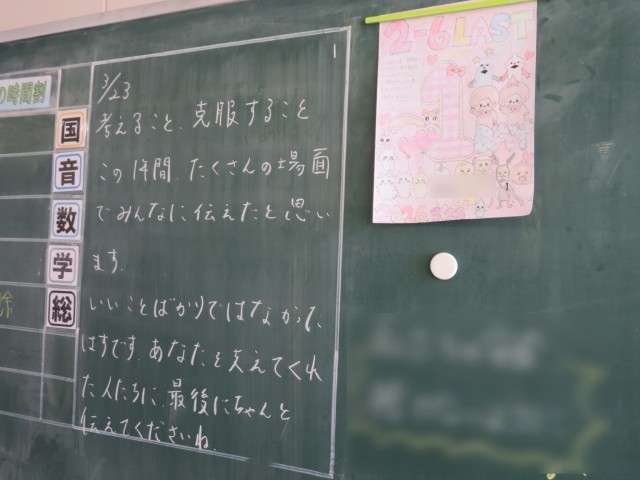 の時間割
国
音
数
学
総
3/23
考えること、克服すること
この1年間、たくさんの場面
でみんなに伝えたと思い
ます。
いいことばかりではなかった
はずです。あなたを支えてくれ
た人たちに、最後にちゃんと
伝えてくださいね。
2-6 LAST
1